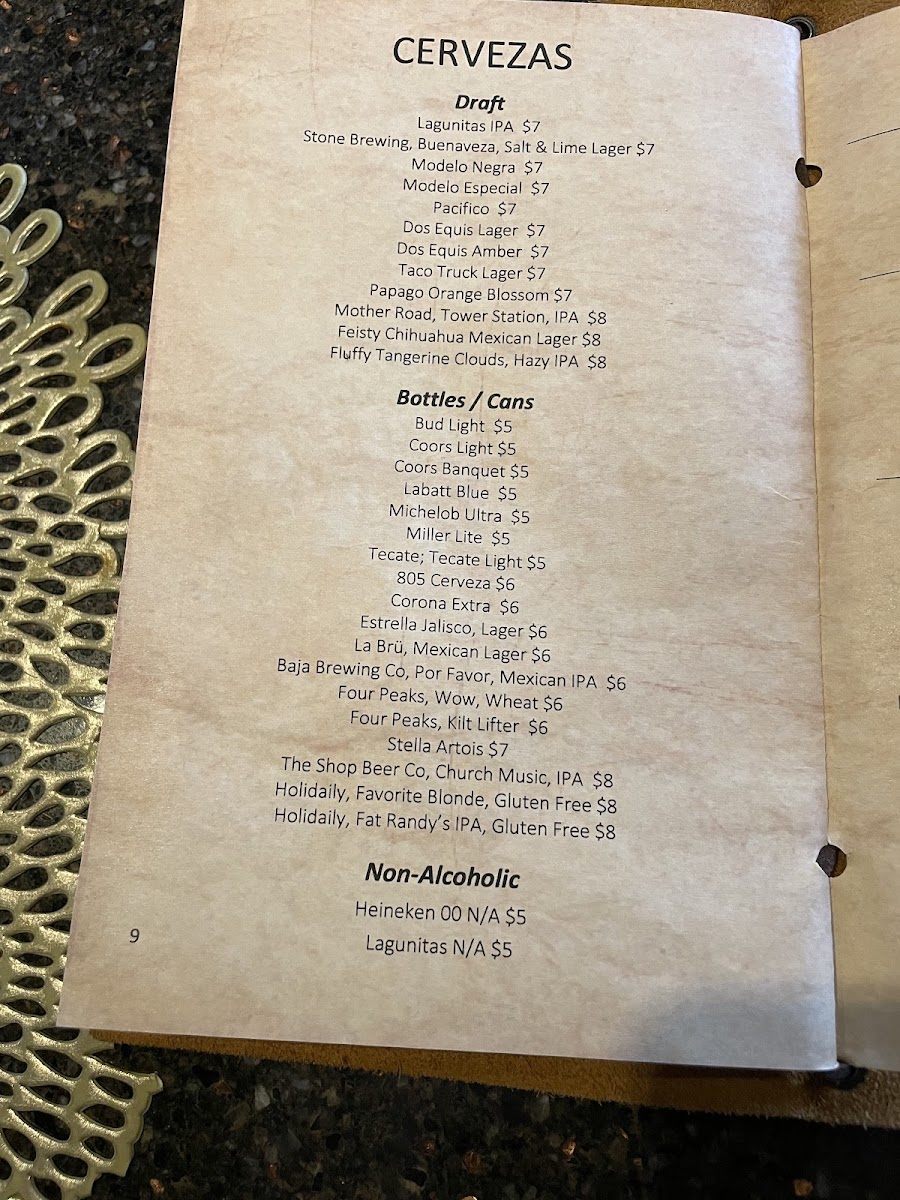 CERVEZAS
Draft
Lagunitas IPA $7
Stone Brewing, Buenaveza, Salt & Lime Lager $7
Modelo Negra $7
Modelo Especial $7
Pacifico $7
Dos Equis Lager $7
Dos Equis Amber $7
Taco Truck Lager $7
Papago Orange Blossom $7
Mother Road, Tower Station, IPA $8
Feisty Chihuahua Mexican Lager $8
Fluffy Tangerine Clouds, Hazy IPA $8
Bottles / Cans
Bud Light $5
Coors Light $5
Coors Banquet $5
Labatt Blue $5
Michelob Ultra $5
Miller Lite $5
Tecate; Tecate Light $5
805 Cerveza $6
Corona Extra $6
Estrella Jalisco, Lager $6
La Brü, Mexican Lager $6
Baja Brewing Co, Por Favor, Mexican IPA $6
Four Peaks, Wow, Wheat $6
Four Peaks, Kilt Lifter $6
Stella Artois $7
The Shop Beer Co, Church Music, IPA $8
Holidaily, Favorite Blonde, Gluten Free $8
Holidaily, Fat Randy's IPA, Gluten Free $8
Non-Alcoholic
Heineken 00 N/A $5
Lagunitas N/A $5
9